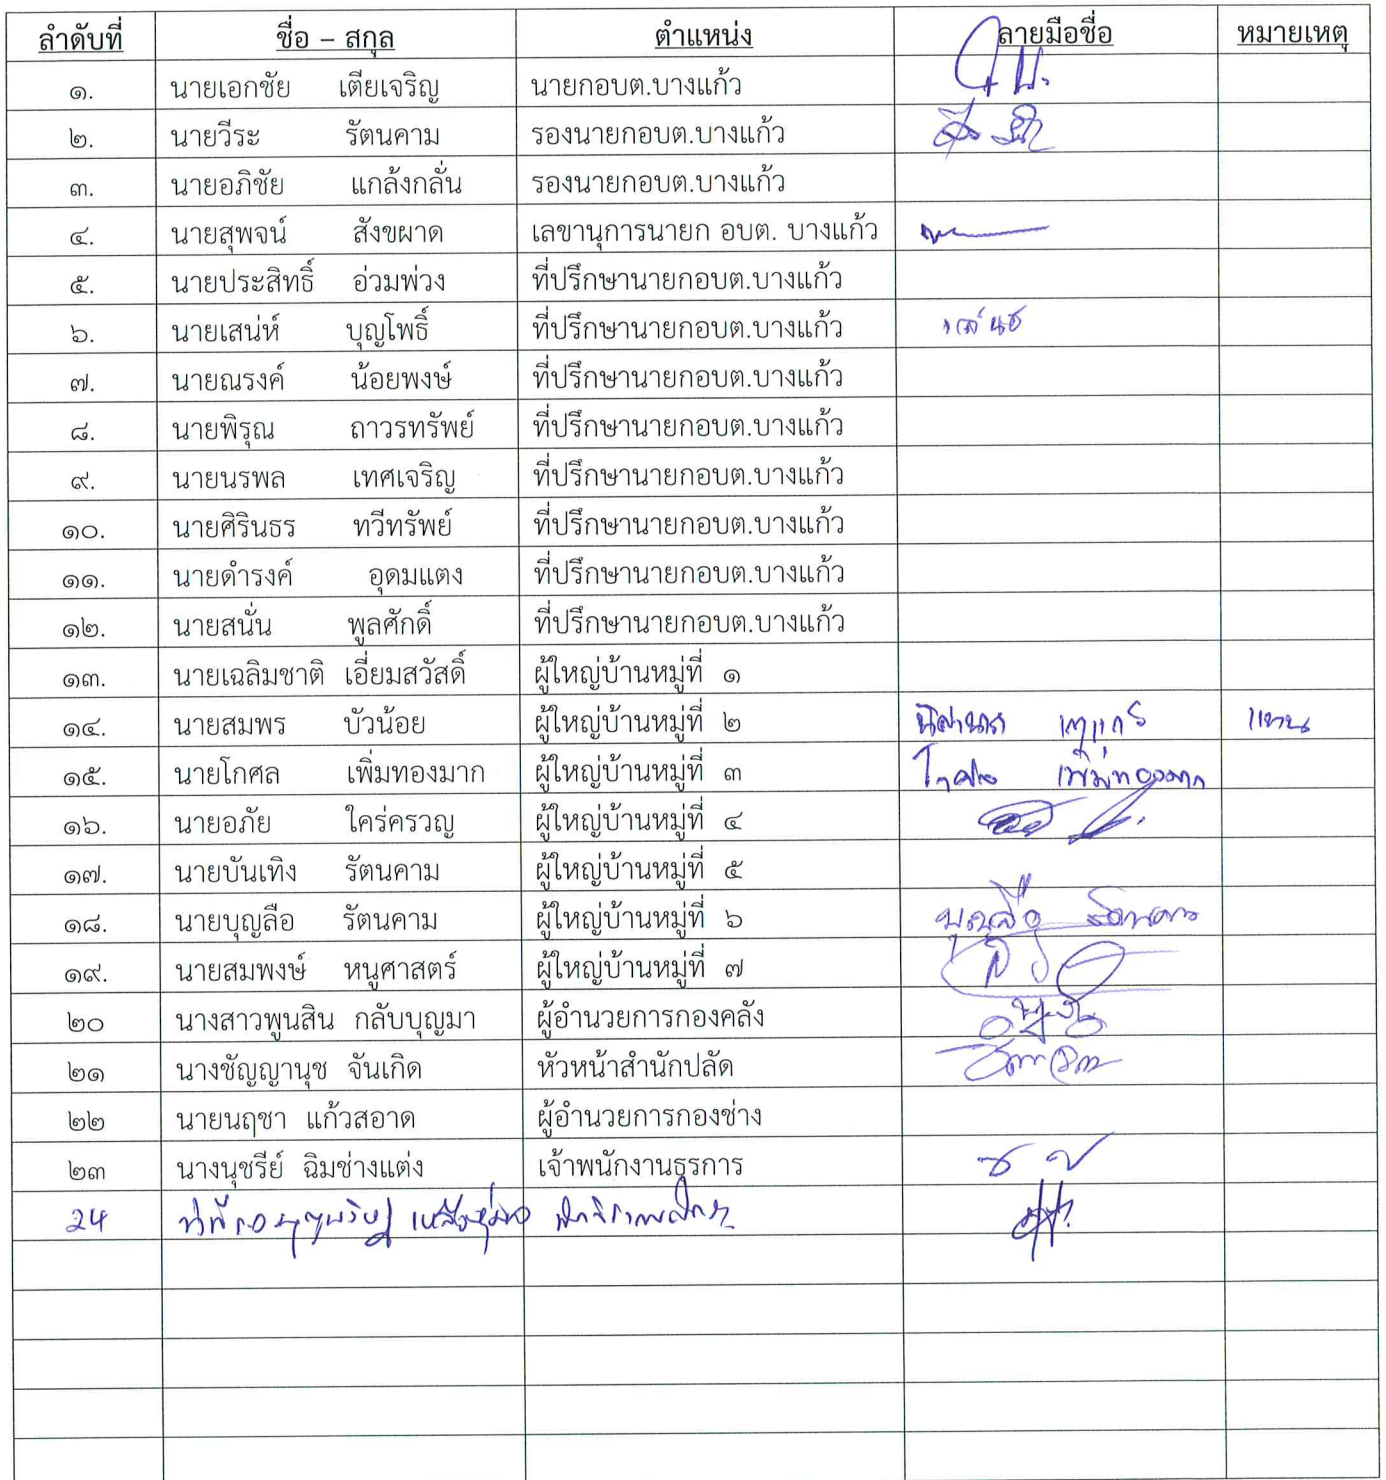 ลำดับที่ ชื่อ – สกุล ตำแหน่ง ลายมือชื่อ หมายเหตุ
๑. นายเอกชัย เตียเจริญ นายกอบต.บางแก้ว
๒. นายวีระ รัตนคาม รองนายกอบต.บางแก้ว
๓. นายอภิชัย แกล้งกลั่น รองนายกอบต.บางแก้ว
๔. นายสุพจน์ สังขผาด เลขานุการนายก อบต. บางแก้ว
๕. นายประสิทธิ์ อ่วมพ่วง ที่ปรึกษานายกอบต.บางแก้ว
๖. นายเสน่ห์ บุญโพธิ์ ที่ปรึกษานายกอบต.บางแก้ว
๗. นายณรงค์ น้อยพงษ์ ที่ปรึกษานายกอบต.บางแก้ว
๘. นายพิรุณ ถาวรทรัพย์ ที่ปรึกษานายกอบต.บางแก้ว
๙. นายนรพล เทศเจริญ ที่ปรึกษานายกอบต.บางแก้ว
๑๐. นายศิรินธร ทวีทรัพย์ ที่ปรึกษานายกอบต.บางแก้ว
๑๑. นายดำรงค์ อุดมแตง ที่ปรึกษานายกอบต.บางแก้ว
๑๒. นายสนั่น พูลศักดิ์ ที่ปรึกษานายกอบต.บางแก้ว
๑๓. นายเฉลิมชาติ เอี่ยมสวัสดิ์ ผู้ใหญ่บ้านหมู่ที่ ๑
๑๔. นายสมพร บัวน้อย ผู้ใหญ่บ้านหมู่ที่ ๒ แทน
๑๕. นายโกศล เพิ่มทองมาก ผู้ใหญ่บ้านหมู่ที่ ๓ โกศล เพิ่มทองมาก
๑๖. นายอภัย ใคร่ครวญ ผู้ใหญ่บ้านหมู่ที่ ๔
๑๗. นายบันเทิง รัตนคาม ผู้ใหญ่บ้านหมู่ที่ ๕
๑๘. นายบุญลือ รัตนคาม ผู้ใหญ่บ้านหมู่ที่ ๖ บุญลือ รัตนคาม
๑๙. นายสมพงษ์ หนูศาสตร์ ผู้ใหญ่บ้านหมู่ที่ ๗
๒๐ นางสาวพูนสิน กลับบุญมา ผู้อำนวยการกองคลัง
๒๑ นางชัญญานุช จันเกิด หัวหน้าสำนักปลัด
๒๒ นายนฤชา แก้วสอาด ผู้อำนวยการกองช่าง
๒๓ นางนุชรีย์ ฉิมช่างแต่ง เจ้าพนักงานธุรการ
24